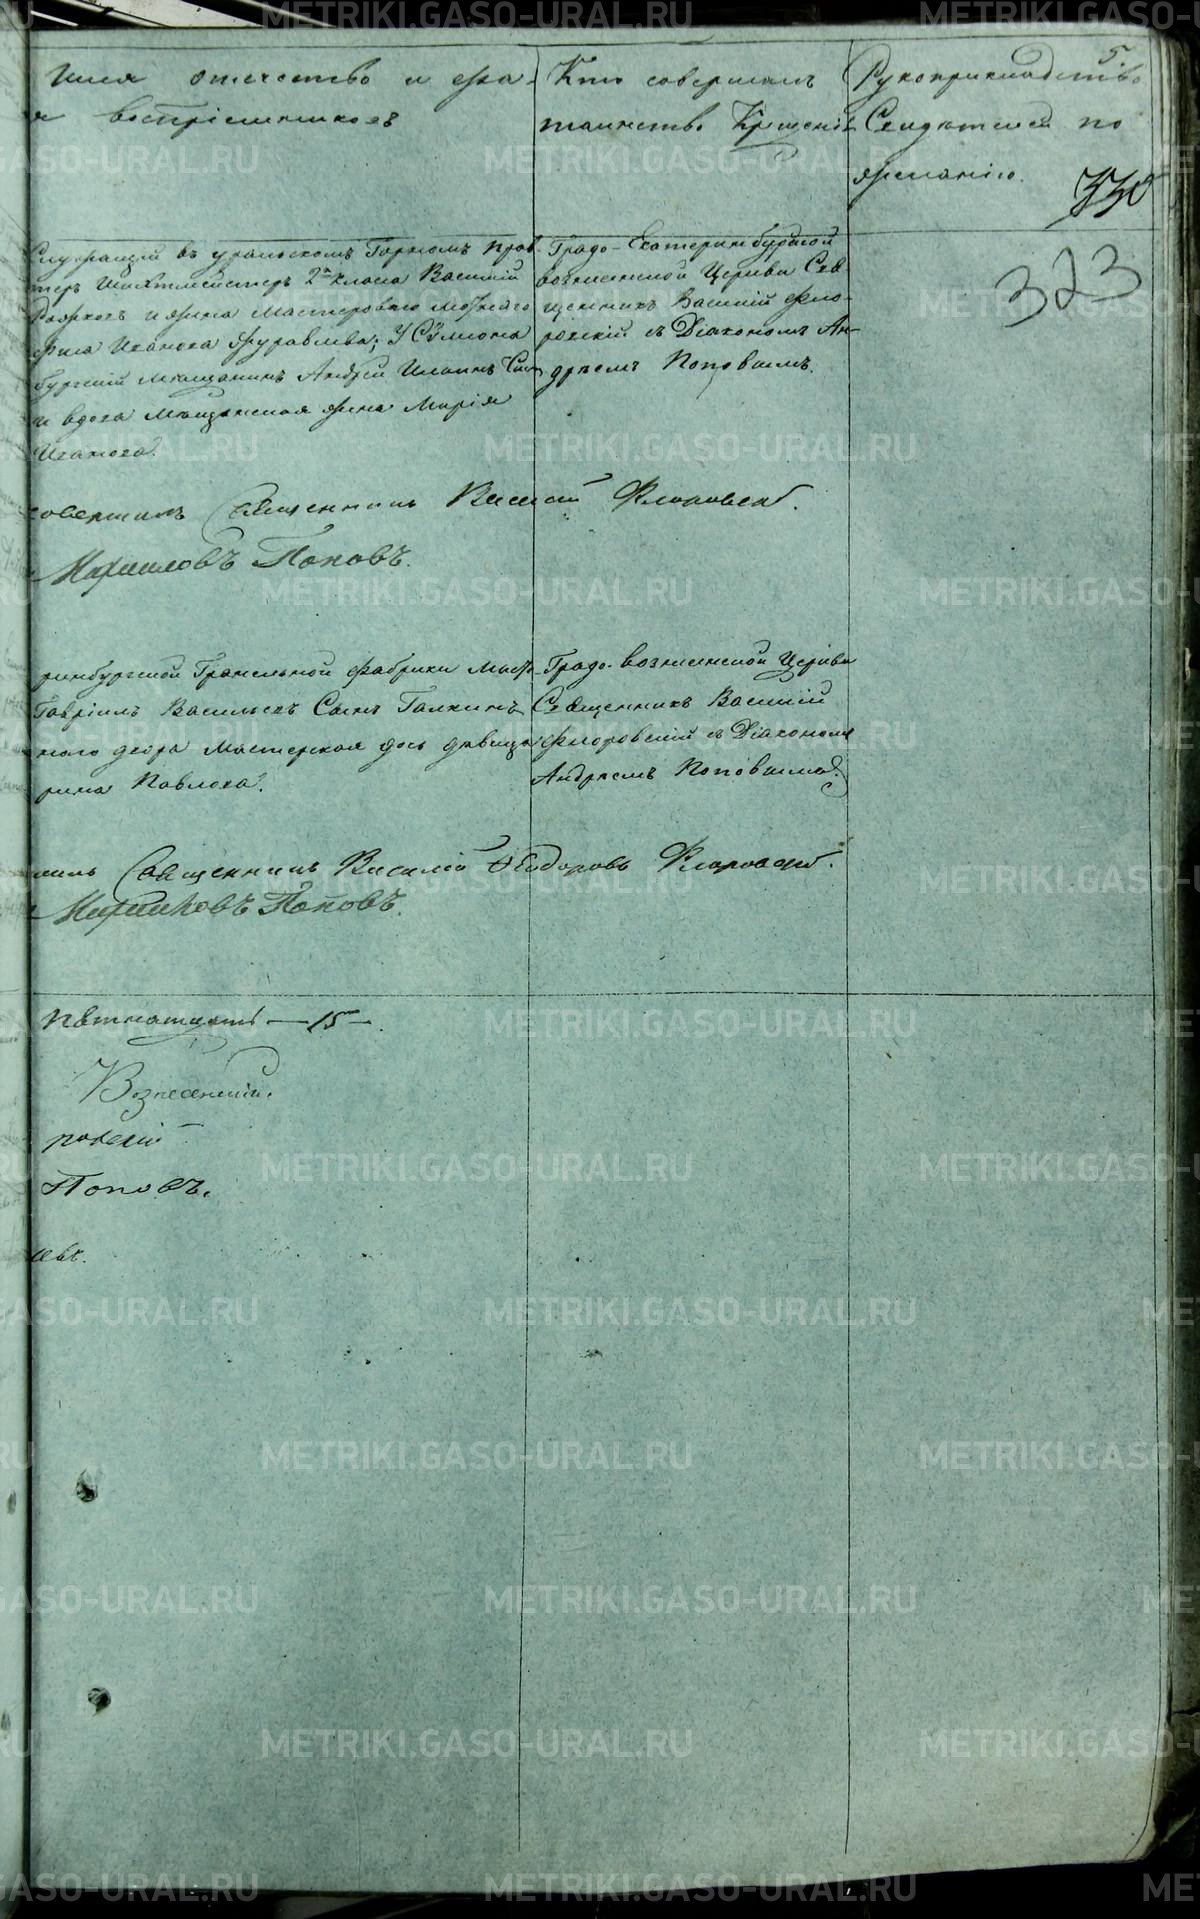 5.
Имя отчество и фа-
я воспріемниковъ
Кто совершалъ
таинство Крещенія
Рукоприкладство
Свидѣтелей по
желанію.
330
323
Служащій въ уральскомъ Горномъ прав-
Шихтмейстеръ 2го класа Василій
и жена Мастероваго
Иванова Журавлева; У Сѵмеона
бургскій мѣщанинъ Андрей Ильинъ
и вдова мѣщанская жена Марія
Иванова.
Градо-Екатеринбургской
вознесенской Церкви Свя-
щенникъ Василій Фло-
ровскій съ Діакономъ Ан-
дреемъ Поповымъ.
совершилъ Священникъ Василій Флоровскій.
Поповъ.
ринбургской Гранильной фабрики Маст-
Гавріилъ Васильевъ Сынъ Галкинъ
наго двора Мастерская дочь дѣвица
рина Павлова.
Градо-вознесенской Церкви
Священникъ Василій
Флоровскій съ Діакономъ
Андреемъ Поповымъ.
шилъ Священникъ Василій Ѳеодоровъ Флоровскій.
Поповъ.
Пятнатцать — 15 —.
Вознесенскій.
ровскій
Поповъ.
METRIKI.GASO-URAL.RU